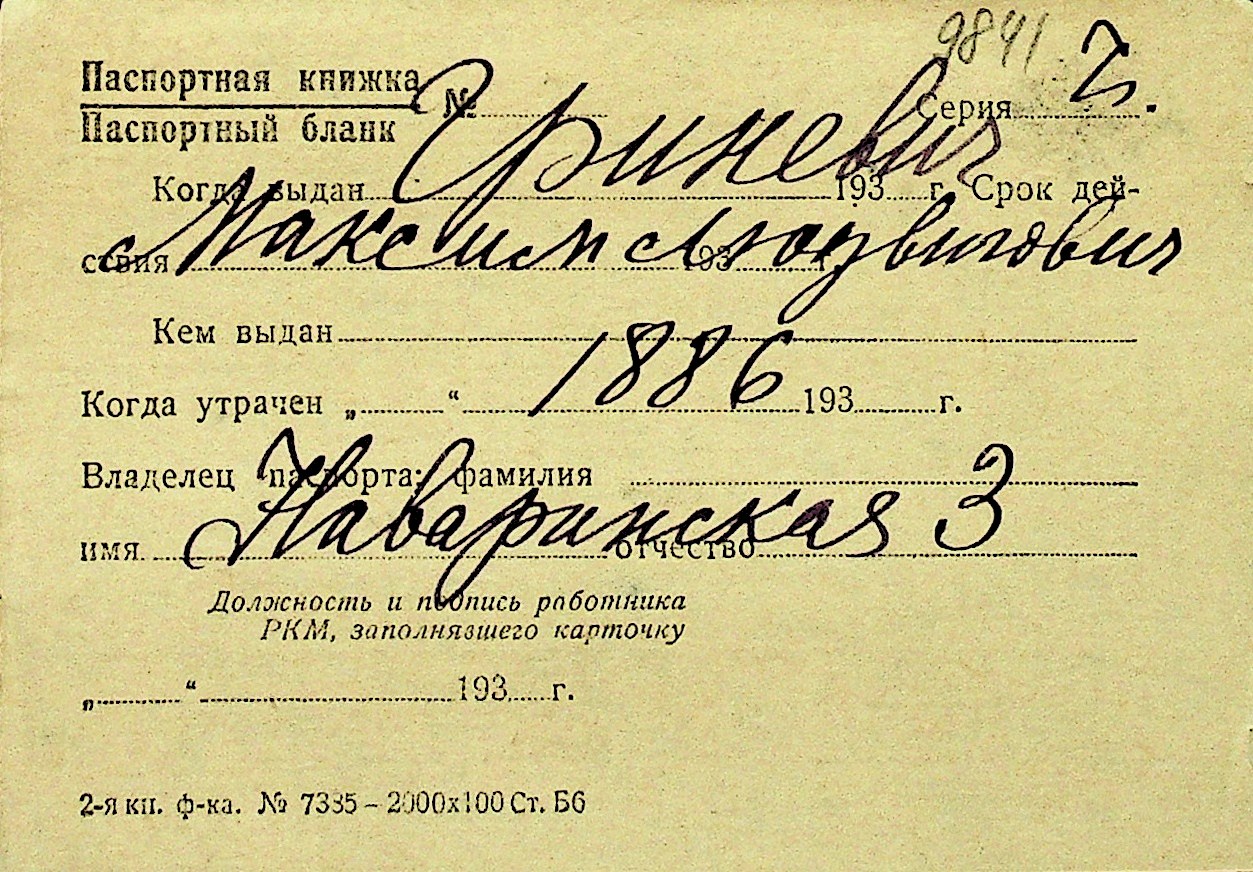 9841 г.
Паспортная книжка
Паспортный бланк
№ Серия
Гриневич
Когда выдан 193 г. Срок дей-
Максим Людвигович
ствия 193 г.
Кем выдан
1886
Когда утрачен „ “ 193 г.
Владелец паспорта: фамилия
Наваринская 3
имя отчество
Должность и подпись работника
РКМ, заполнявшего карточку
„ “ 193 г.
2-я кн. ф-ка. № 7335 – 2000х100 Ст. Б6